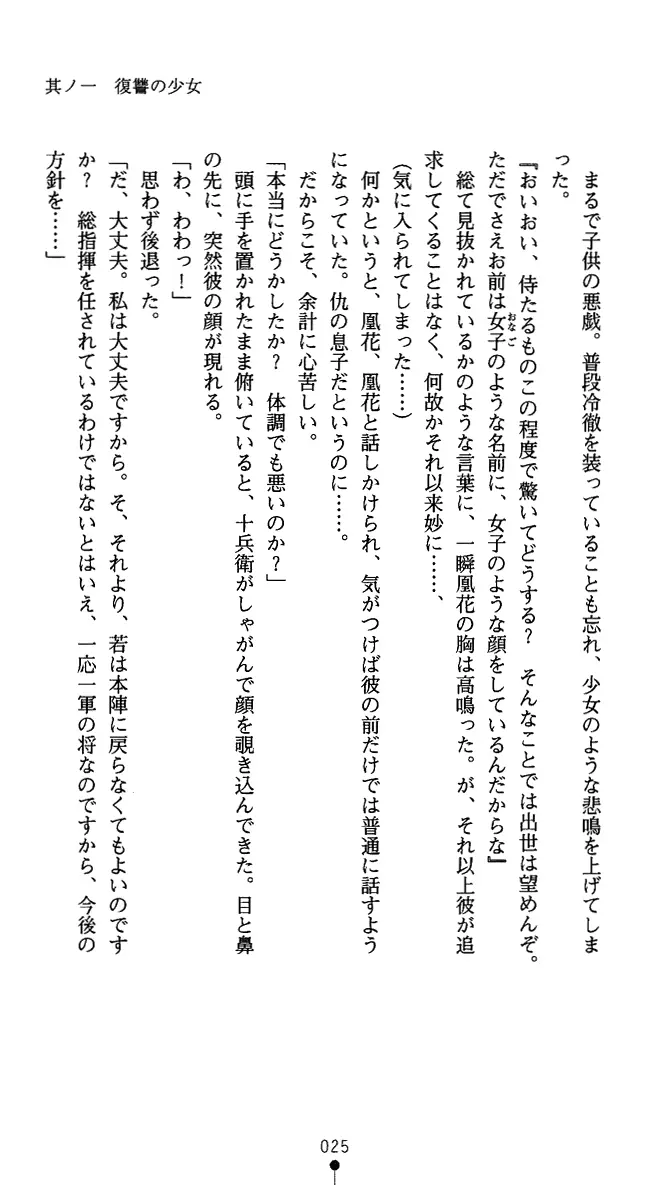 其ノ一　復讐の少女
　まるで子供の悪戯。普段冷徹を装っていることも忘れ、少女のような悲鳴を上げてしま
った。
『おいおい、侍たるものこの程度で驚いてどうする？　そんなことでは出世は望めんぞ。
ただでさえお前は女子おなごのような名前に、女子のような顔をしているんだからな』
　総て見抜かれているかのような言葉に、一瞬凰花の胸は高鳴った。が、それ以上彼が追
求してくることはなく、何故かそれ以来妙に……、
（気に入られてしまった……）
　何かというと、凰花、凰花と話しかけられ、気がつけば彼の前だけでは普通に話すよう
になっていた。仇の息子だというのに……。
　だからこそ、余計に心苦しい。
「本当にどうかしたか？　体調でも悪いのか？」
　頭に手を置かれたまま俯いていると、十兵衛がしゃがんで顔を覗き込んできた。目と鼻
の先に、突然彼の顔が現れる。
「わ、わわっ！」
　思わず後退った。
「だ、大丈夫。私は大丈夫ですから。そ、それより、若は本陣に戻らなくてもよいのです
か？　総指揮を任されているわけではないとはいえ、一応一軍の将なのですから、今後の
方針を……」
025